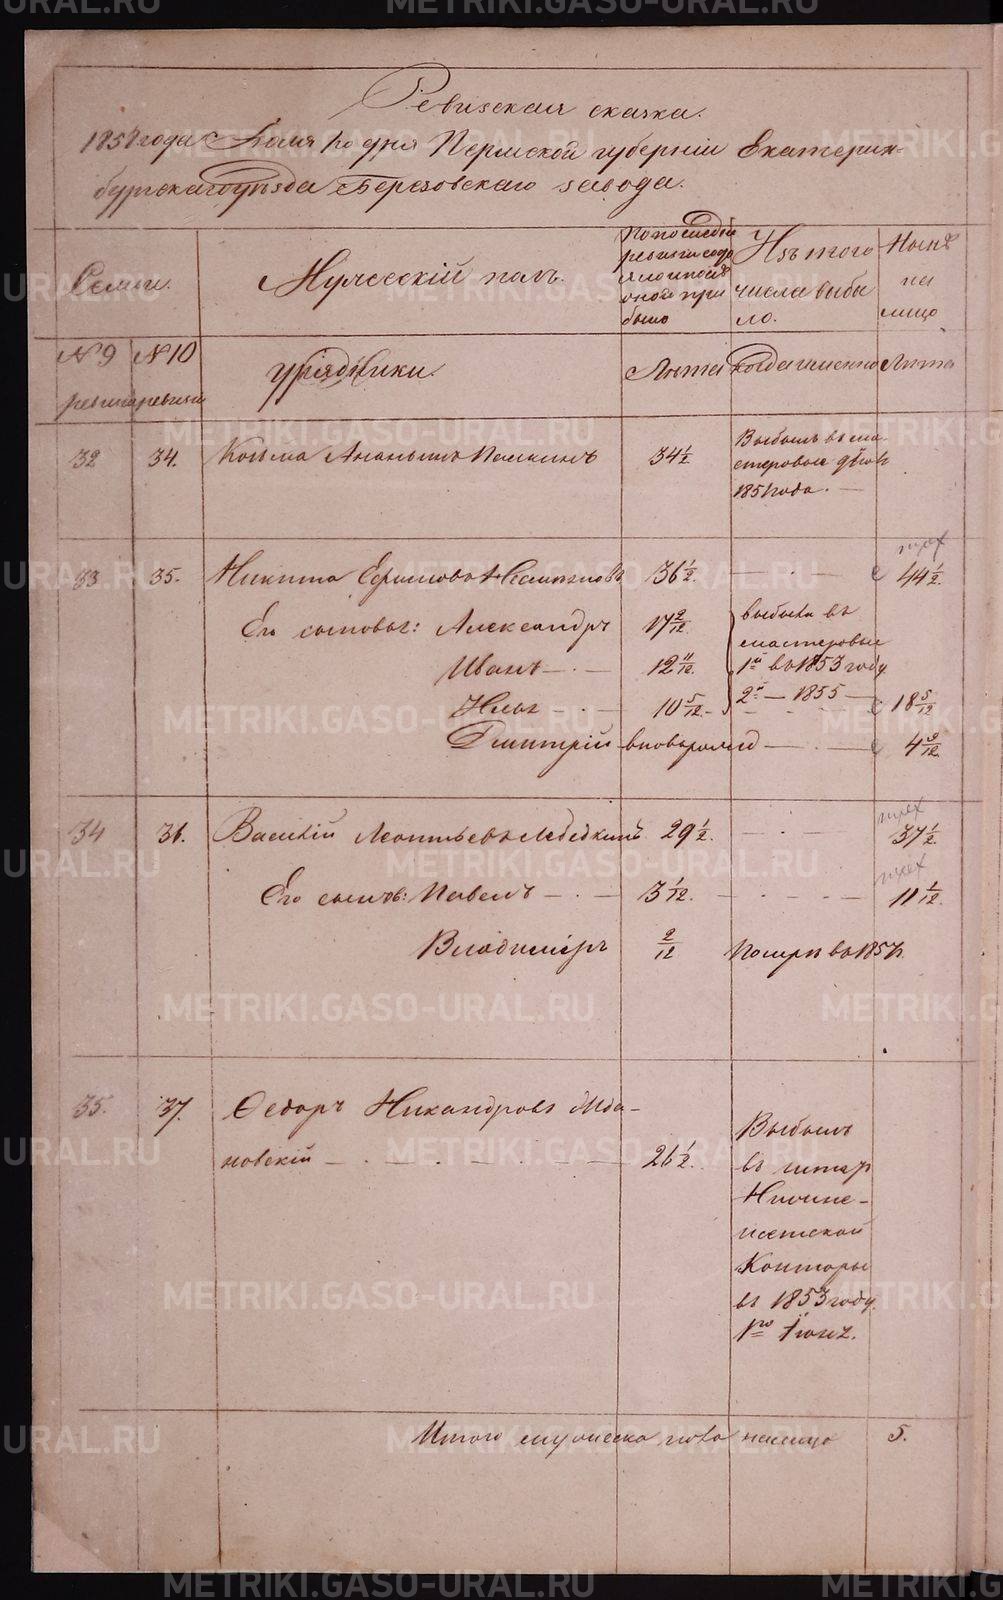 Ревизская сказка.
1858 года Пермской губернiи Екатерин-
бургского уѣзда Березовскаго завода.
Семьи.
Мужескiй полъ.
По последней ревизiи состояло и после оной прибыло
Изъ того числа выбыло.
Нынѣ на лицо
№ 9 ревизiи
№ 10 ревизiи
урядники.
Лѣта
когда именно
Лѣта
32 34. Козьма Ананьинъ 34 1/2
Выбылъ въ ма-
стеровые
1851 года.
33 35. Никита Ефимовъ 36 1/2 44 1/2.
Его сыновья: Александръ 17 9/12
выбыли въ
мастеровые
Иванъ 12 11/12. 1й въ 1853 году
2й — 1855
Илья 10 5/12. 18 5/12
Дмитрiй вноворожд 4 9/12.
34 36. Василiй Леонтьевъ 29 1/2. 37 1/2.
Его сынов: Павелъ 3 1/12. 11 1/12.
Владимiръ 2/12 Помръ въ 1857 г.
35. 37. Ѳедоръ Никандровъ Ива-
новскiй 26 1/2.
Выбылъ
въ штар
Нижне-
исетской
Конторы
въ 1853 году
1го Iюня.
Итого мужеска пола налицо 5.
METRIKI.GASO-URAL.RU